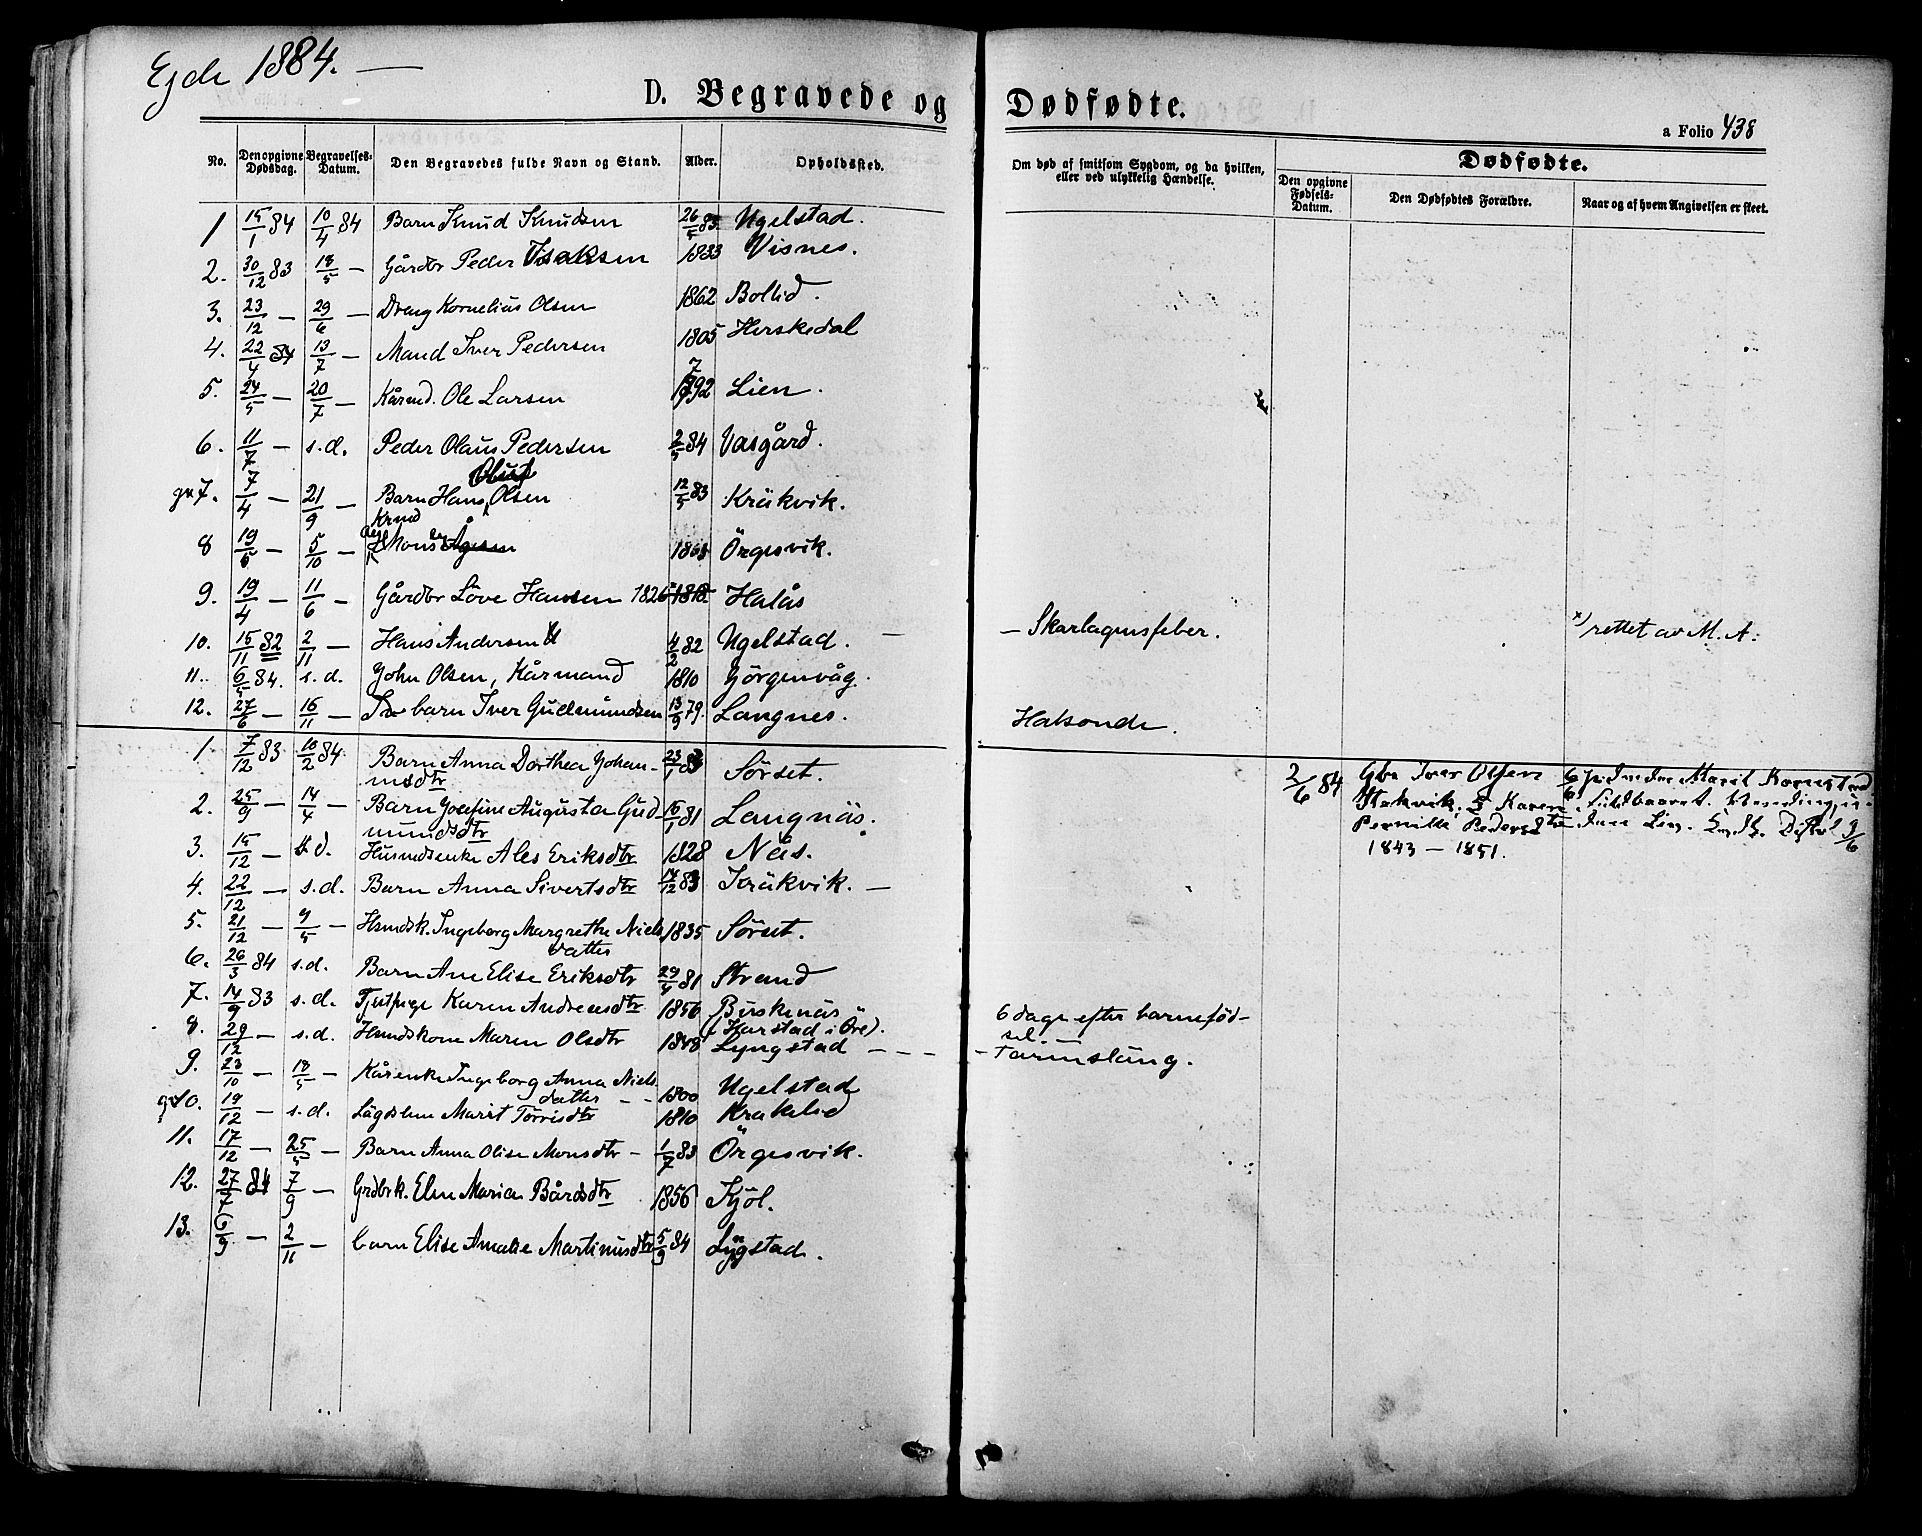 Ejde 1884. —
D. Begravede og Dødfødte.
a Folio 438
No. Den opgivne Dødsdag. Begravelses-Datum. Den Begravedes fulde Navn og Stand. Alder. Opholdssted.
Om død af smitsom Sygdom, og da hvilken, eller ved ulykkelig Hændelse.
Dødfødte.
Den opgivne Fødsels-Datum. Den Dødfødtes Forældre. Naar og af hvem Angivelsen er skeet.
1 15/1 84 10/4 84 Barn Knud Knudsen 26/5 83 Ugelstad.
2. 30/12 83 18/5 — Gårdbr Peder Isaksen 1833 Visnes.
3. 23/12 — 29/6 — Dreng Kornelius Olsen 1862 Bollid.
4. 22/4 84 13/7 — Mand Iver Pedersen 1805 Herskedal
5. 24/5 — 20/7 — Kårmd. Ole Larsen 1792 Lien.
6. 11/7 — s.d. Peder Olaus Pedersen 2/5 84 Vasgård.
7. 7/4 — 21/9 — Barn Hans Olsen 12/5 83 Kräkvik.
8 19/5 — 5/10 — Örgesvik.
9. 19/4 — 11/6 — Gårdbr Löve Hansen 1826 Halås
10. 15/11 82 2/11 — Hans Andersen 4/2 82 Ugelstad. — — Skarlagensfeber. x) rettet av M. A:
11. 6/5 84. s.d. John Olsen, Kårmand 1810 Görgenvåg.
12. 27/6 — 16/11 — barn Iver Gudmundsen 13/9 79. Langnes. Halsonde.
1. 7/12 83 10/2 84 Barn Anna Dorthea Johan-
nesdtr 23/1 83 Sörset.
2/6 84 Gbr Iver Olsen
Stokvik. & Karen
Pernille Pedersdtr
1843 — 1851.
2. 25/9 — 14/4 — Barn Josefine Augusta Gud-
mundsdtr 15/1 81 Langnäs.
3. 15/12 — s.d. Husmdsenke Ales Eriksdtr 1828 Näs.
4. 22/12 — s.d. Barn Anna Sivertsdtr 14/12 83 Kräkvik. —
5. 21/12 — 4/5 — Hsmdsk. Ingeborg Margrethe Niels
datter 1835 Sörset.
6. 26/3 84 s.d. Barn Ane Elise Eriksdtr 29/4 81 Strand
7. 14/9 83 s.d. Tjpige Karen Andreasdtr 1856 Birkenäs
(Harstad i Öre). 6 dage efter barnefød-
sel
8. 29/12 — s.d. Hsmdskone Maren Olsdtr 1848 Lyngstad — — — — Tarmslyng.
9. 23/10 — 18/5 — Kårenke Ingeborg Anna Niels
datter — — 1800 Ugelstad
10. 19/12 — s.d. Lägdslem Marit Torrisdtr 1810 Kraklid
11. 17/12 — 25/5 — Barn Anna Olise Monsdtr — 1/7 83 Örgesvik.
12. 27/7 84 7/9 — Grdbrk. Elen Maria Bårdsdtr 1856 Kjöl.
13. 6/9 — 2/11 — barn Elise Amalie Martinusdtr 5/9 84 Lygstad.